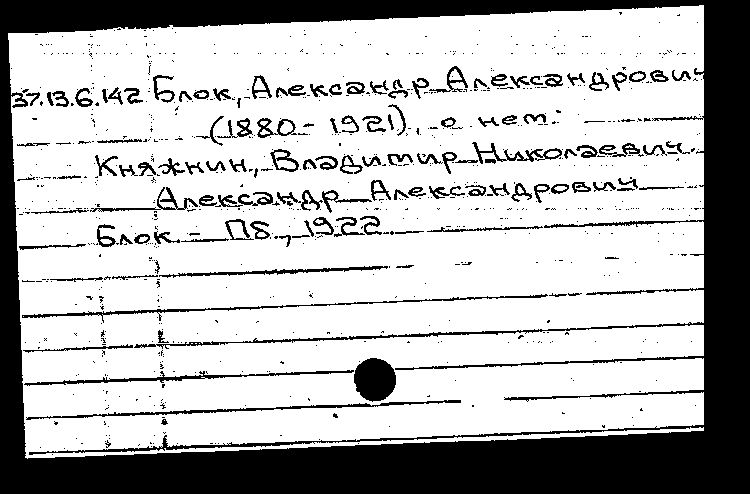 37.13.6.142 Блок, Александр Александрович
(1880-1921), о нем:
Княжнин, Владимир Николаевич.
Александр Александрович
Блок - ПБ., 1922